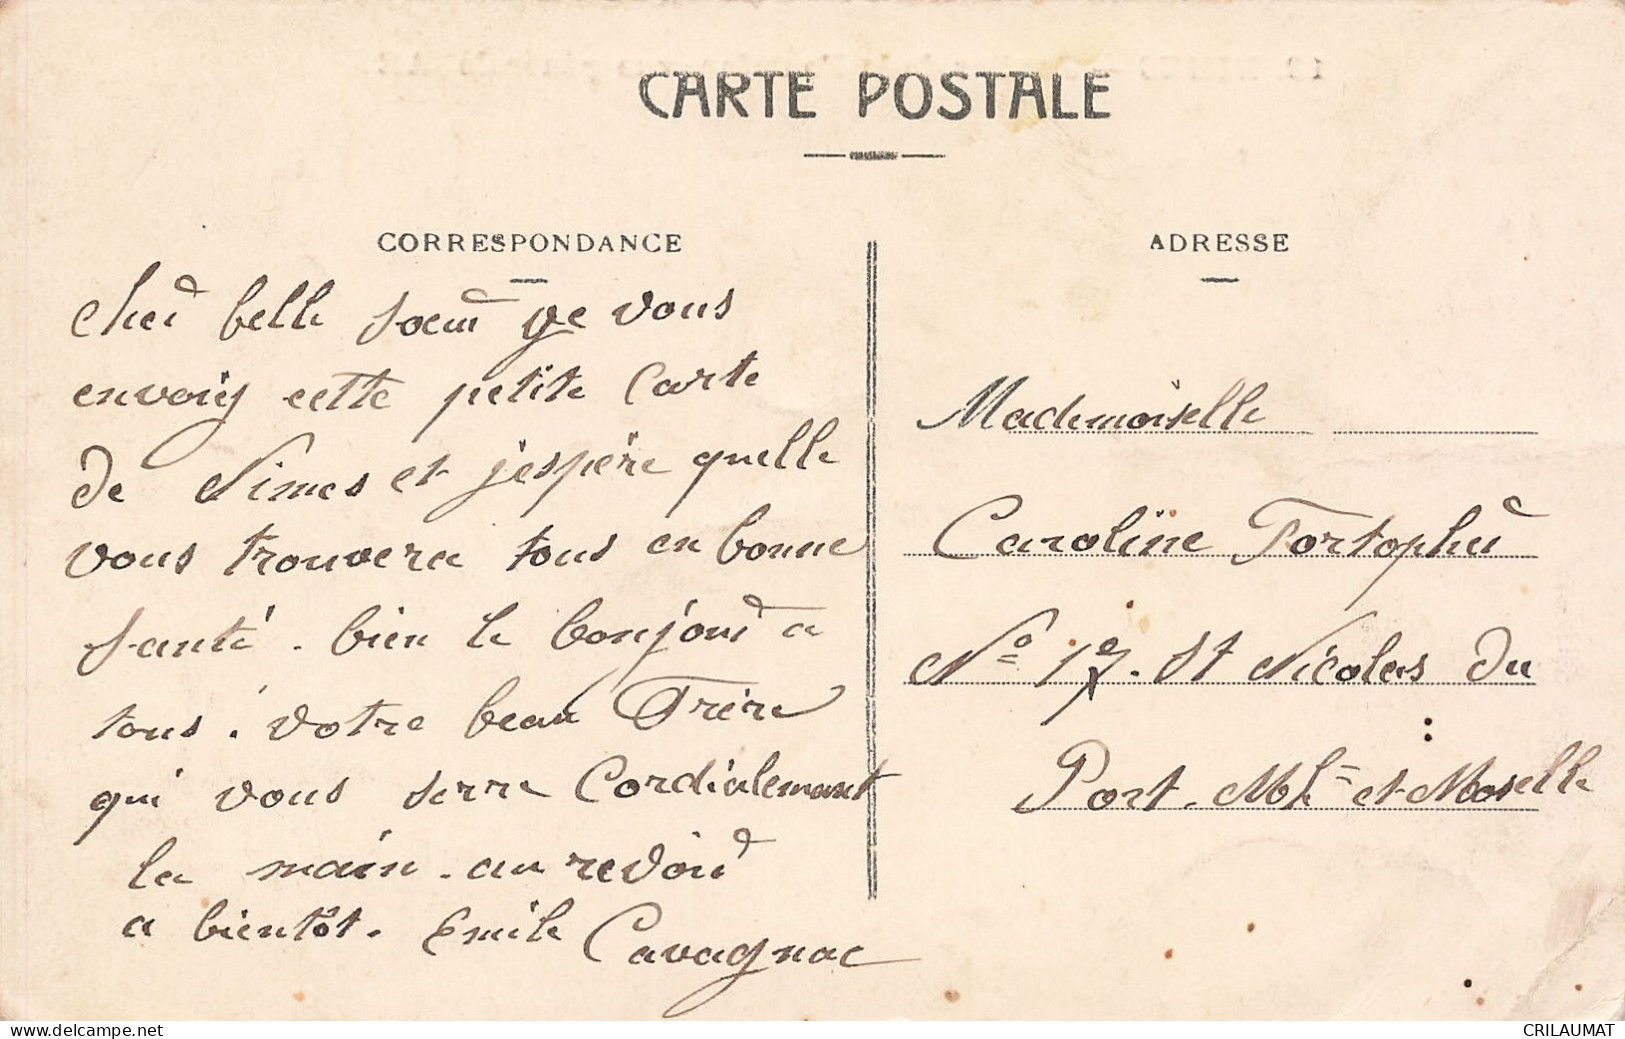 CARTE POSTALE
CORRESPONDANCE
cher belle soeur ge vous
envoiy cette petite Carte
de Nimes et j'espère quelle
vous trouvera tous en bonne
santé. bien le bonjour a
tous. votre beau Frère
qui vous serre Cordialement
la main. au revoir
a bientôt. Emile Cavagnac
ADRESSE
Mademoiselle
Caroline
No 17. St Nicolas du
Port. Mhe et Moselle
CRILAUMAT